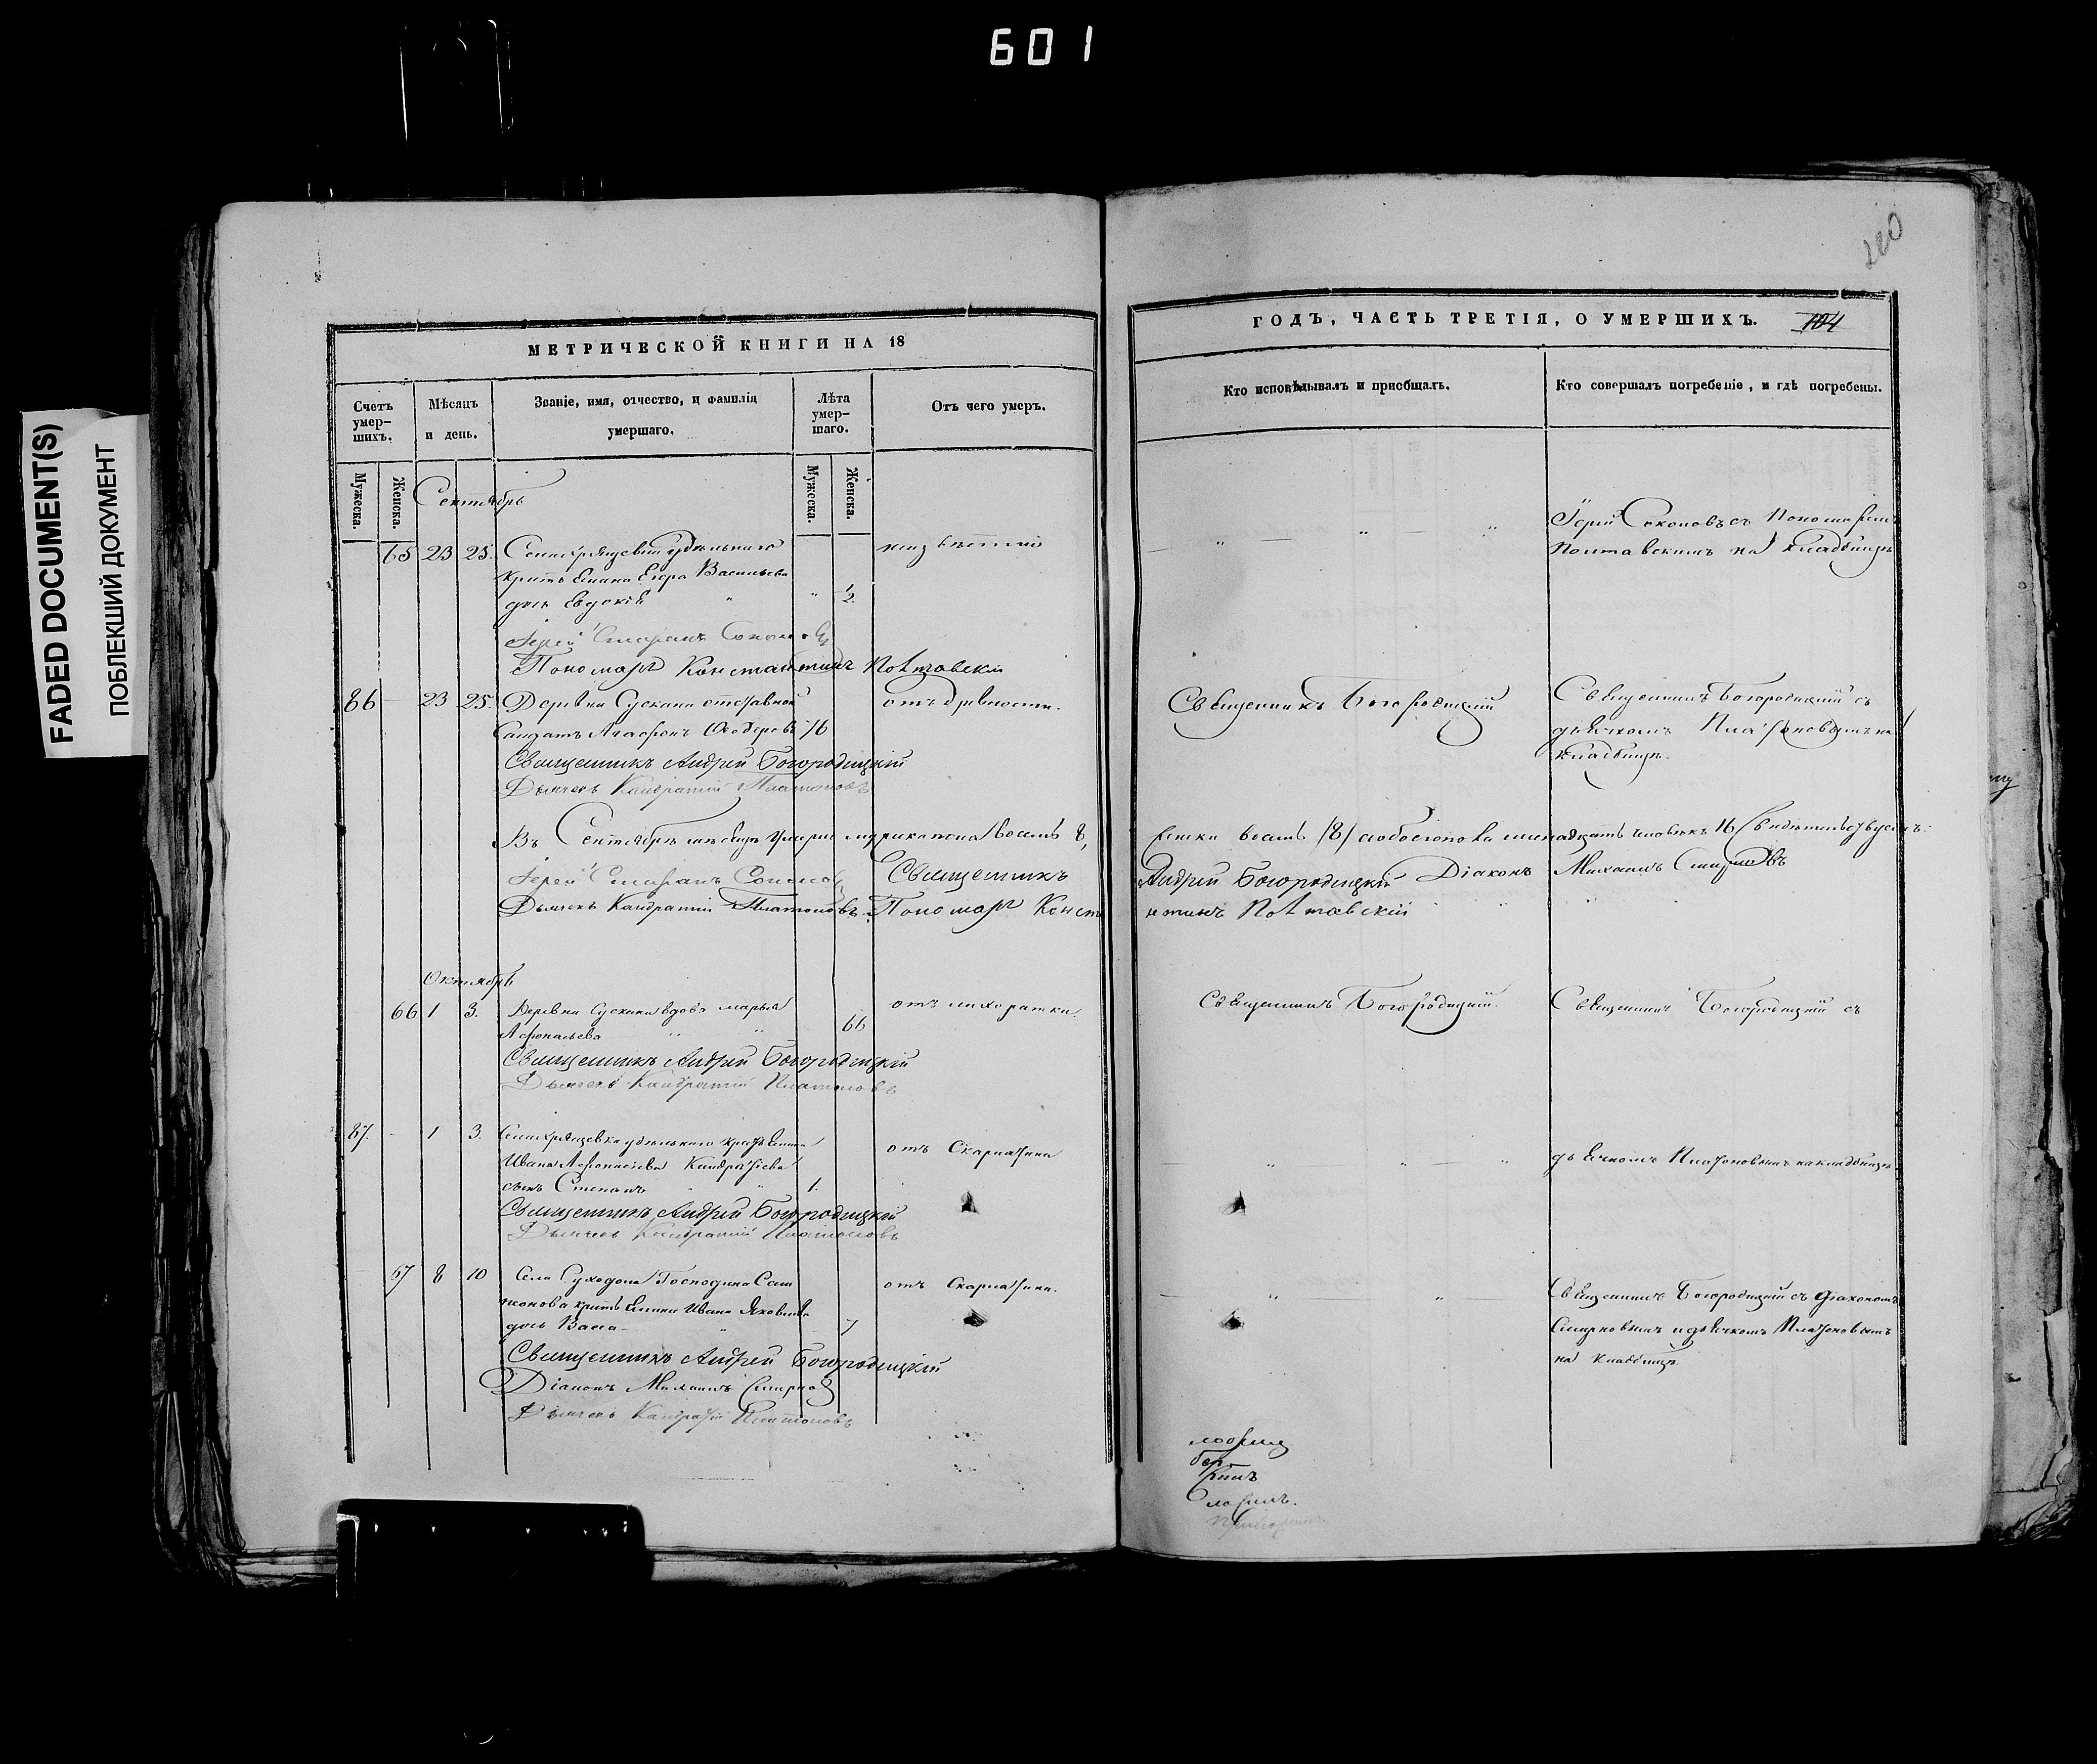 601
FADED DOCUMENT(S)
ПОБЛЕКШИЙ ДОКУМЕНТ
МЕТРИЧЕСКОЙ КНИГИ НА 18
Счетъ умер-шихъ.
Мѣсяцъ и день.
Званіе, имя, отчество, и фамилія умершаго.
Лѣта умер-шаго.
Отъ чего умеръ.
Мужеска.
Женска.
Мужеска.
Женска.
Сентябрь
65 23 25. удѣльнаго
крестьянина Егора Васильева
дочь Евдокія " " ½
Іерей Соколовъ
Пономарь Константинъ Полтавскій
86 - 23 25. Деревни Сускана отставной отъ древности.
Солдатъ Агафонъ Ѳедоровъ 76
Священникъ Андрей Богородицкій
Дьячекъ Кондратій Платоновъ
Въ Сентябрѣ мѣсяцѣ умерло мужеска пола восемь 8,
Іерей Соколовъ Священникъ
Дьячекъ Кондратій Платоновъ. Пономарь Конста
Октябрь
66 1 3. Деревни Сускана вдова Марья 66 отъ лихоратки.
Афонасьева " "
Священникъ Андрей Богородицкій
Дьячекъ Кондратій Платоновъ
87. - 1 3. удѣльнаго крестьянина отъ Скарлатина
Ивана Афонасіева Кондратіева
сынъ Степанъ " 1.
Священникъ Андрей Богородицкій
Дьячекъ Кондратій Платоновъ
67 8 10 Села Суходола Господина отъ Скарлатина.
крестьянина Ивана Яковлева
дочь Васса - " 7
Священникъ Андрей Богородицкій
Діаконъ Михаилъ Смирновъ
Дьячекъ Кондратій Платоновъ
ГОДЪ, ЧАСТЬ ТРЕТІЯ, О УМЕРШИХЪ.
104
Кто исповѣдывалъ и пріобщалъ.
Кто совершалъ погребеніе, и гдѣ погребены.
Іерей Соколовъ съ Пономаремъ
Полтавскимъ на кладбищѣ
Священникъ Богородицкій
Священникъ Богородицкій съ
дьячкомъ Платоновымъ на
кладбищѣ.
женска восемь /8/ а обоего пола шестнадцать человѣкъ 16 Свидѣтельствуемъ:
Андрей Богородицкій Діаконъ Михаилъ Смирновъ
нтинъ Полтавскій
Священникъ Богородицкій.
Священникъ Богородицкій съ
дьячкомъ Платоновымъ на кладбищѣ
Священникъ Богородицкій съ діакономъ
Смирновымъ и дьячкомъ Платоновымъ
на кладбищѣ